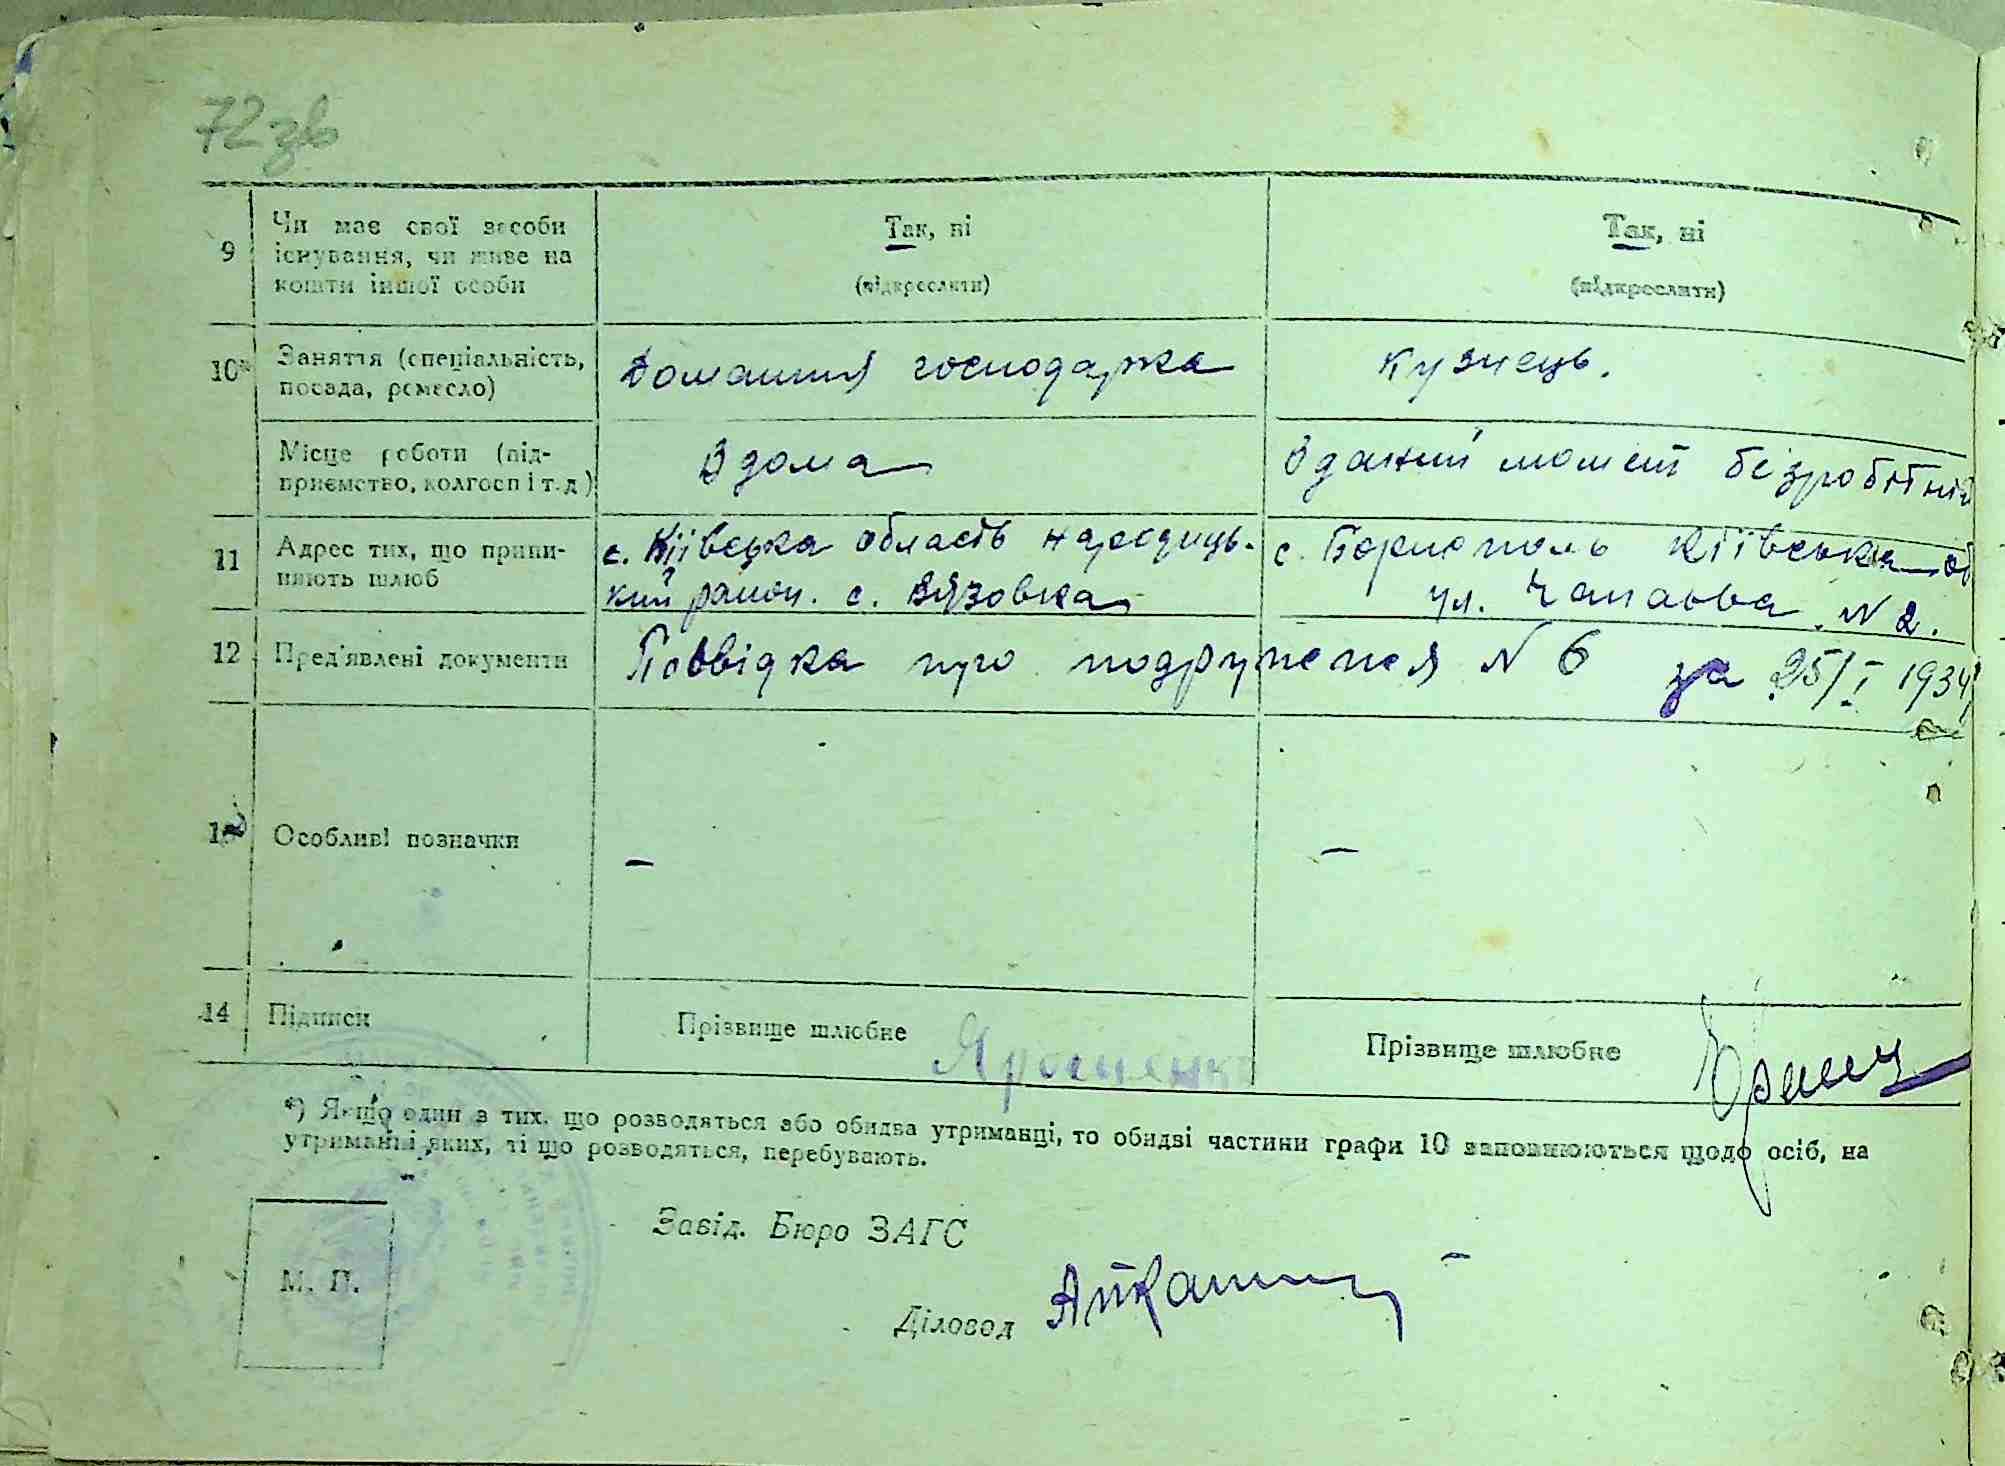 72зв
9
Чи має свої засоби
існування, чи живе на
кошти іншої особи
Так, ні
(підкреслити)
Так, ні
(підкреслити)
10*
Заняття (спеціальність,
посада, ремесло)
Домашня господарка
Кузнець.
Місце роботи (під-
приємство, колгосп і т. д)
Вдома
В даний момент безробітній
11
Адрес тих, що припи-
няють шлюб
с. Київська область Народиць-
кий район. с. Вязовка
с. Борисполь Київська об
ул. Чапаєва N 2.
12
Пред'явлені документи
Посвідка про подруженея N 6 за 25/I 1934
Особливі позначки
–
–
14
Підписи
Прізвище шлюбне
Ярошенко
Прізвище шлюбне
*) Якщо один з тих, що розводяться або обидва утриманці, то обидві частини графи 10 заповнюються щодо осіб, на
утриманні яких, ті що розводяться, перебувають.
Завід. Бюро ЗАГС
М. П.
Діловод